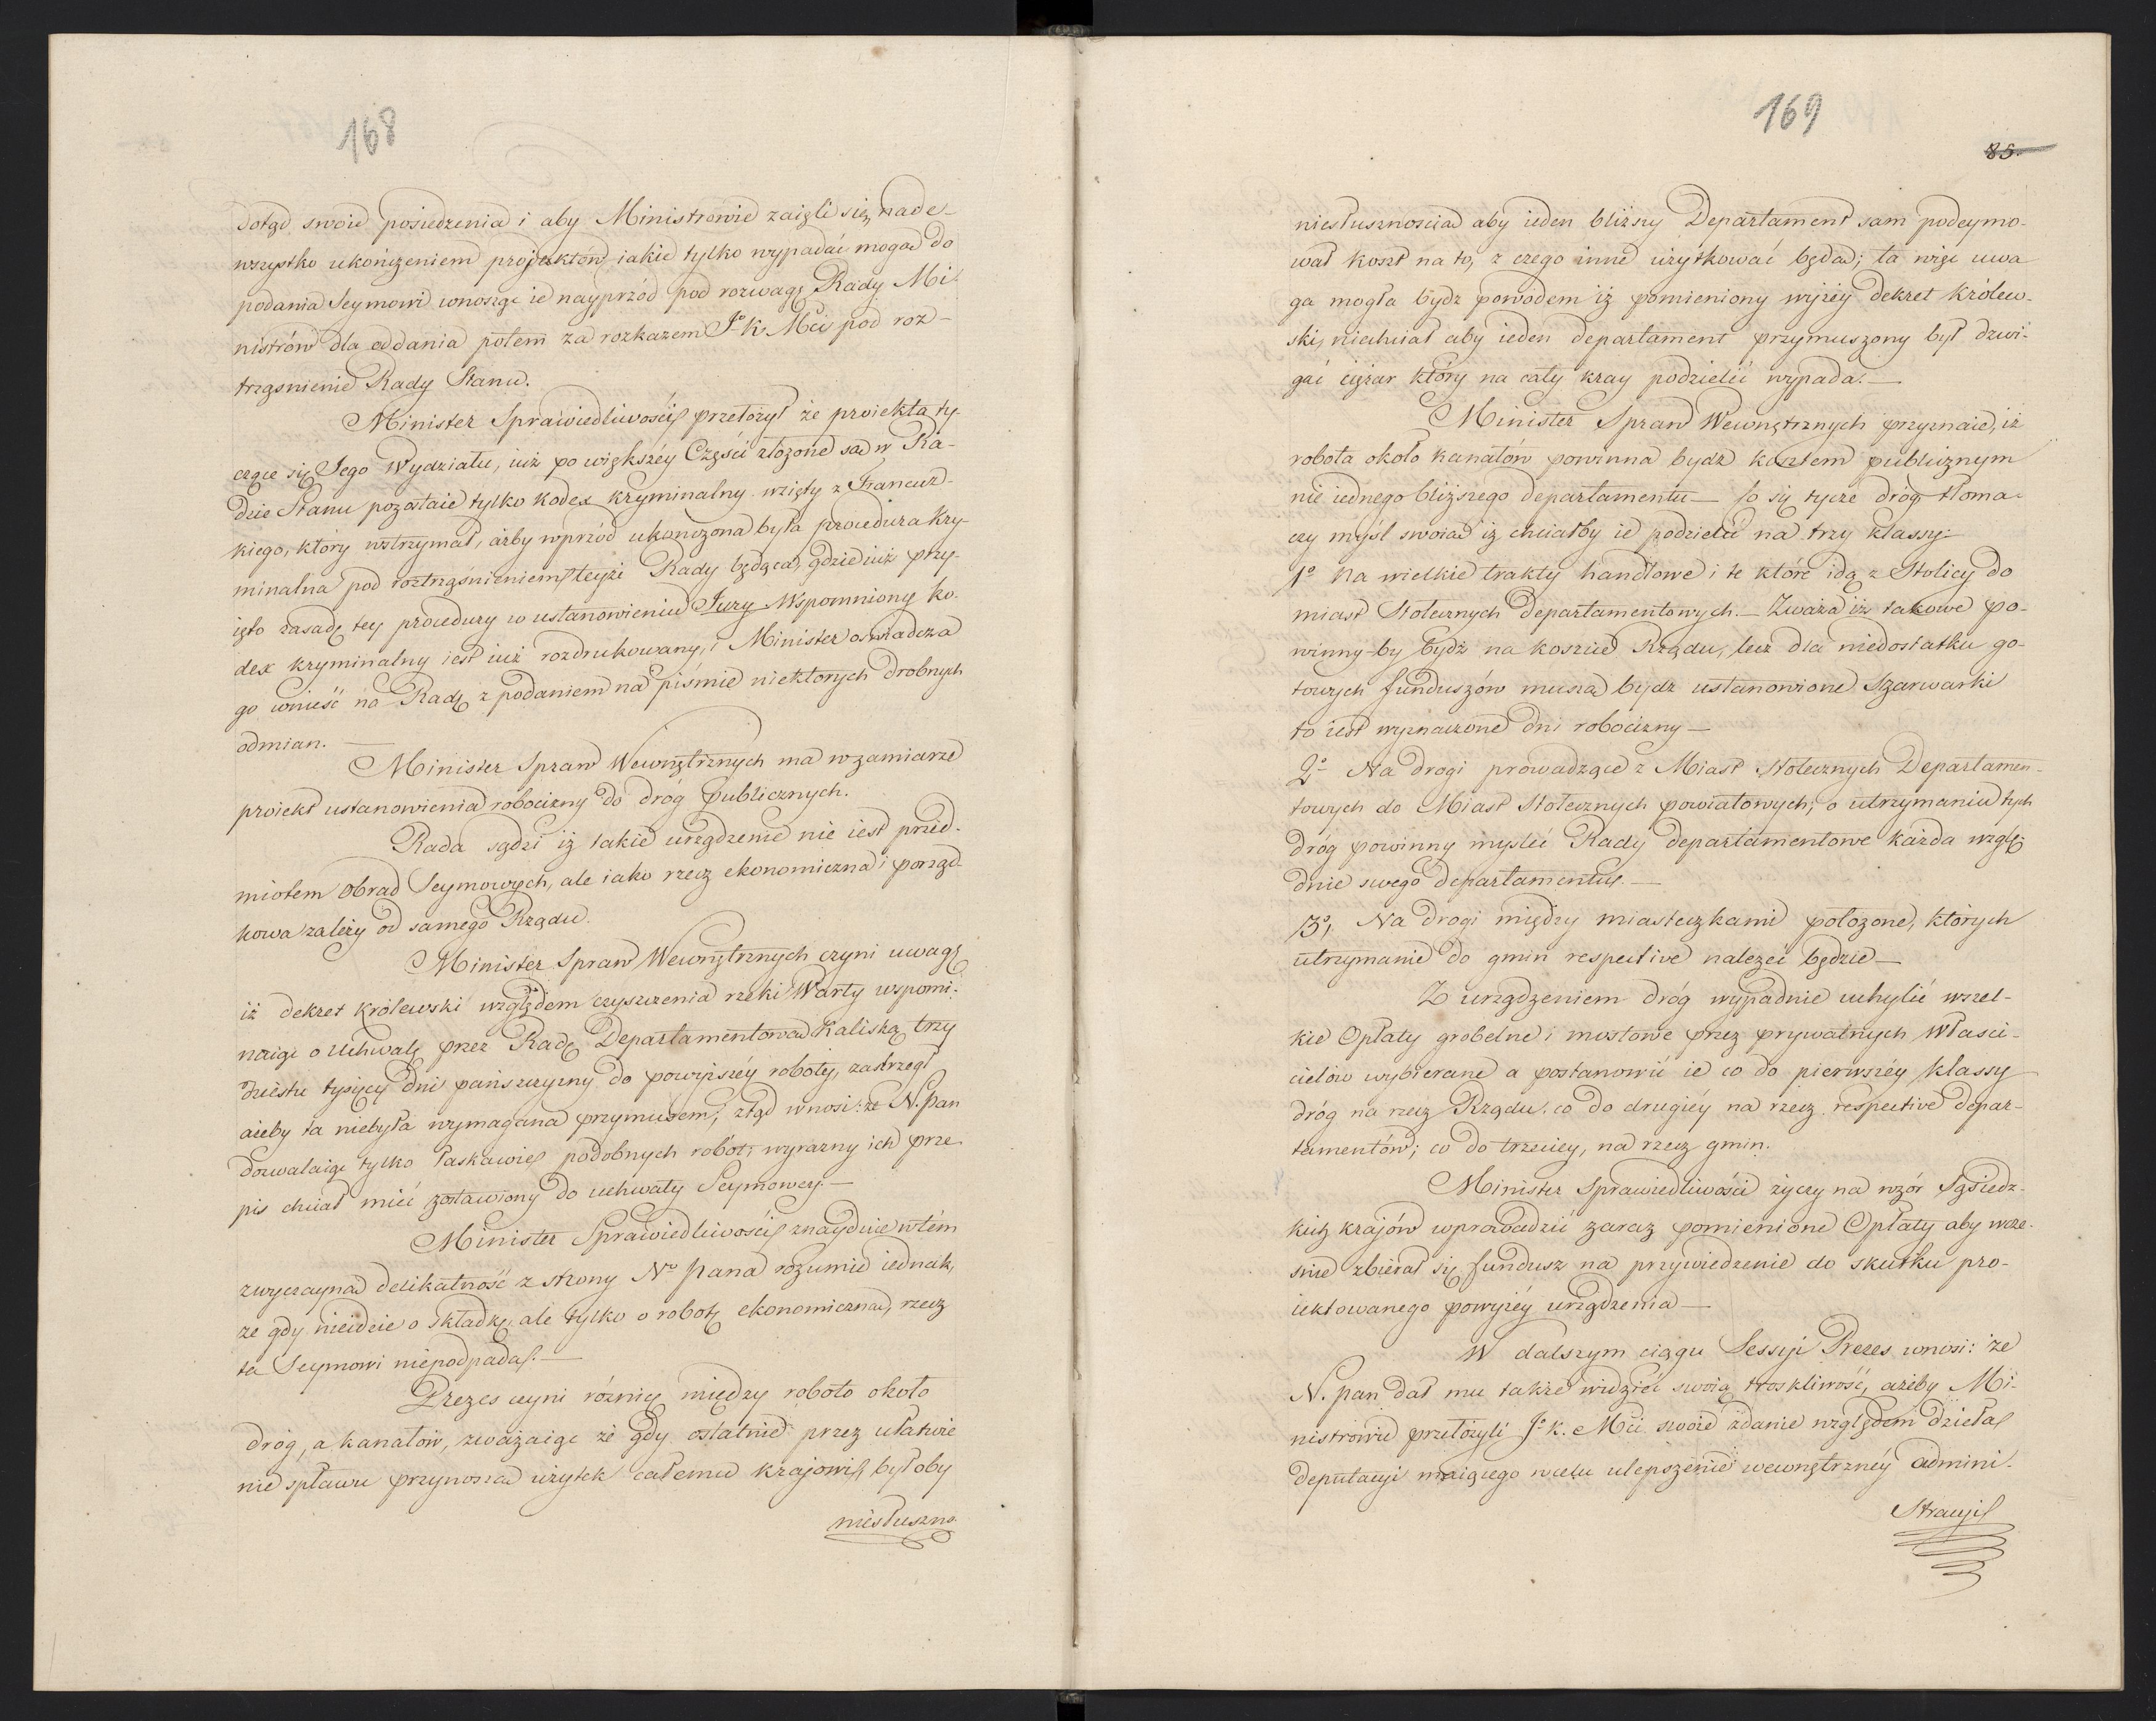 168
dotąd swoie posiedzenia i aby Ministrowie zaięli się nade-
wszystko ukończeniem projektów iakie tylko wypadać mogą do
podania Seymowi wnosząc ie nayprzód pod rozwagę Rady Mi-
nistrów dla oddania potem za rozkazem Jº K. Mci pod roz-
trząsnienie Rady Stanu.
Minister Sprawiedliwości przełożył że proiekta ty-
czące się Jego Wydziału, iuż po większéy Części złożone są w Ra-
dzie Stanu pozostaie tylko kodex kryminalny wzięty z Francuz-
kiego, który wstrzymał, ażby wprzód ukończona była procedura kry-
minalna pod roztrząśnieniem teyże Rady będąca, gdzie iuż przy-
ięto zasadę tey procedury w ustanowieniu Jury. Wspomniony ko-
dex kryminalny iest iuż rozdrukowany, i Minister oświadcza
go wnieść na Radę z podaniem na piśmie niektórych drobnych
odmian. —
Minister Spraw Wewnętrznych ma w zamiarze
proiekt ustanowienia robocizny do dróg publicznych.
Rada sądzi iż takie urządzenie nie iest przed-
miotem Obrad Seymowych, ale iako rzecz ekonomiczna i porząd-
kowa zależy od samego Rządu.
Minister Spraw Wewnętrznych czyni uwagę
iż dekret królewski względem czyszczenia rzeki Warty wspomi-
naiąc o Uchwale przez Radę Departamentową Kaliską trzy
dziestu tysięcy dni pańszczyzny do powyższéy roboty, zastrzegł
ażeby ta niebyła wymagana przymusem; ztąd wnosi: że N. Pan
dozwalaiąc tylko łaskawie podobnych robót, wyrazny ich prze-
pis chciał mieć zostawiony do uchwały Seymowey. —
Minister Sprawiedliwości znayduie w tém
zwyczayną delikatność z strony Nº Pana rozumie iednak,
że gdy nieidzie o składkę, ale tylko o robotę ekonomiczną, rzecz
ta Seymowi niepodpada. —
Prezes czyni różnicę między robotą około
dróg, a kanałów, zważaiąc że gdy ostatnie przez ułatwie
nie spławu przynoszą użytek całemu krajowi, byłoby
niesłuszno-
169
85.
niesłusznością aby ieden bliższy Departament sam podeymo-
wał koszt na to, z czego inne użytkować będą; ta więc uwa
ga mogła bydź powodem iż pomieniony wyżéy dekret królew-
ski, niechciał aby ieden departament przymuszony był dzwi-
gać ciężar który na cały kray podzielić wypada. —
Minister Spraw Wewnętrznych przyznaie, iż
robota około kanałów powinna bydź kosztem publicznym
nie iednego bliższego departamentu — Co się tycze dróg tłoma-
czy myśl swoią iż chciałby ie podzielić na trzy klassy:
1º Na wielkie trakty handlowe i te które idą z Stolicy do
miast Stołecznych departamentowych. — Zważa iż takowe po-
winny-by bydź na koszcie Rządu, lecz dla niedostatku go-
towych funduszów muszą bydz ustanowione Szarwarki
to iest wyznaczone dni robocizny —
2º Na drogi prowadzące z Miast Stołecznych Departamen-
towych do Miast Stołecznych powiatowych; o utrzymaniu tych
dróg powinny myslić Rady departamentowe każda wzglę-
dnie swego departamentu. —
3º, Na drogi między miasteczkami położone, których
utrzymanie do gmin respective nalezeć będzie —
Z urządzeniem dróg wypadnie uchylić wszel-
kie Opłaty grobelne i mostowe przez prywatnych właści-
cielów wybierane a postanowić ie co do pierwszéy klassy
dróg na rzecz Rządu. co do drugiéy na rzecz respective depar-
tamentów; co do trzeciey, na rzecz gmin.
Minister Sprawiedliwości życzy na wzór Sąsiedz-
kich krajów wprowadzić zaraz pomienione Opłaty aby wcze-
śnie zbierał się fundusz na przywiedzenie do skutku pro-
iektowanego powyżéy urządzenia —
W dalszym ciągu Sessyi Prezes wnosi: że
N. Pan dał mu także widzieć swoią troskliwość, ażeby Mi-
nistrowie przełożyli Jº K. Mci swoie zdanie względem dzieła
deputacyi maiącego w celu ulepszenie wewnętrznéy admini-
stracyi